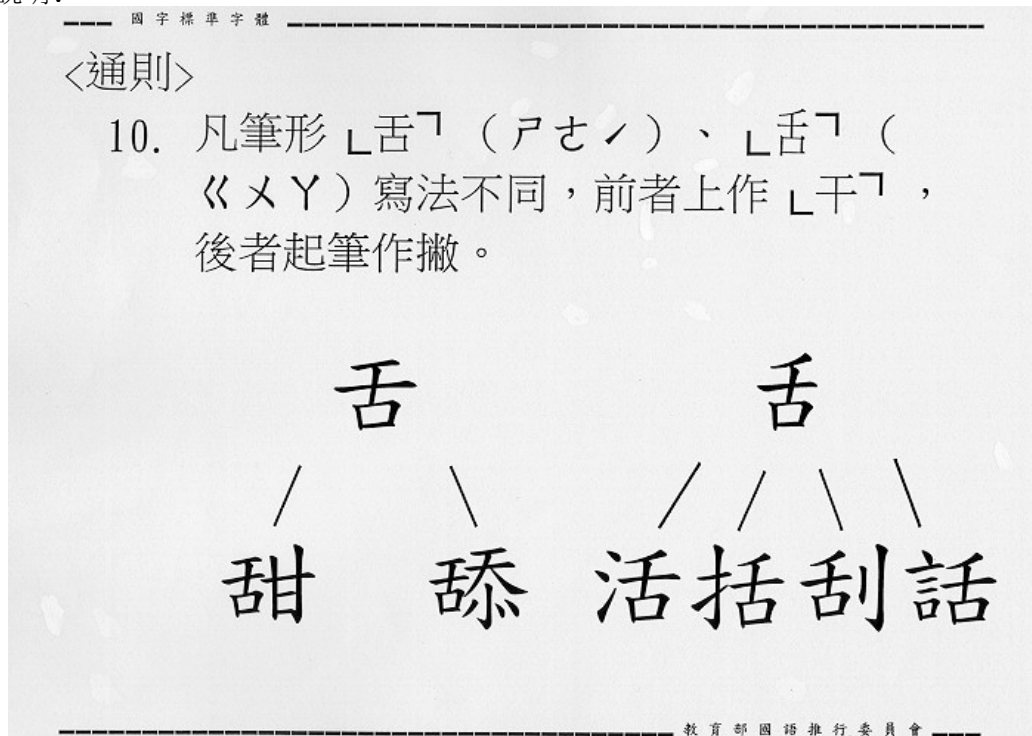 國字標準字體
<通則>
10. 凡筆形「舌」（ㄕㄜˊ）、「𠯑」（
ㄍㄨㄚ）寫法不同，前者上作「干」，
後者起筆作撇。
舌 𠯑
甜 舔 活 括 刮 話
教育部國語推行委員會